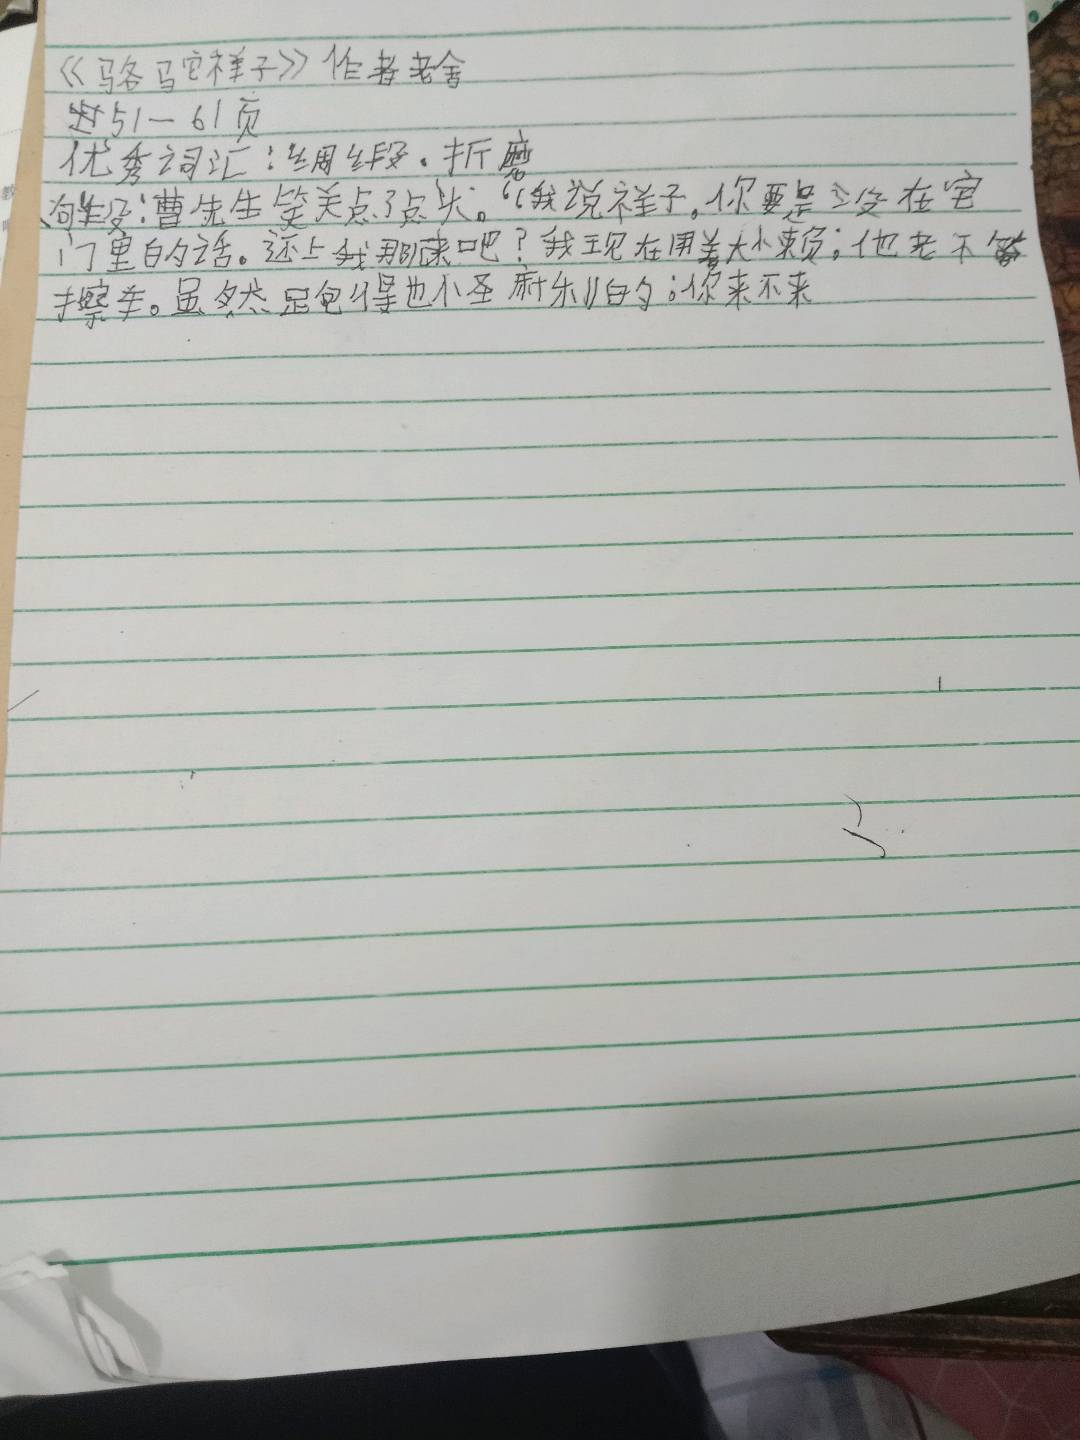 《骆驼祥子》作者老舍
过51—61页
优秀词汇:绸缎.折磨
句段:曹先生笑关点了点头。“我说祥子,你要是没在宅
门里的话。还上我那来吧?我现在用着大小赖;他老不
擦车。虽然跑得也小圣的;你来不来